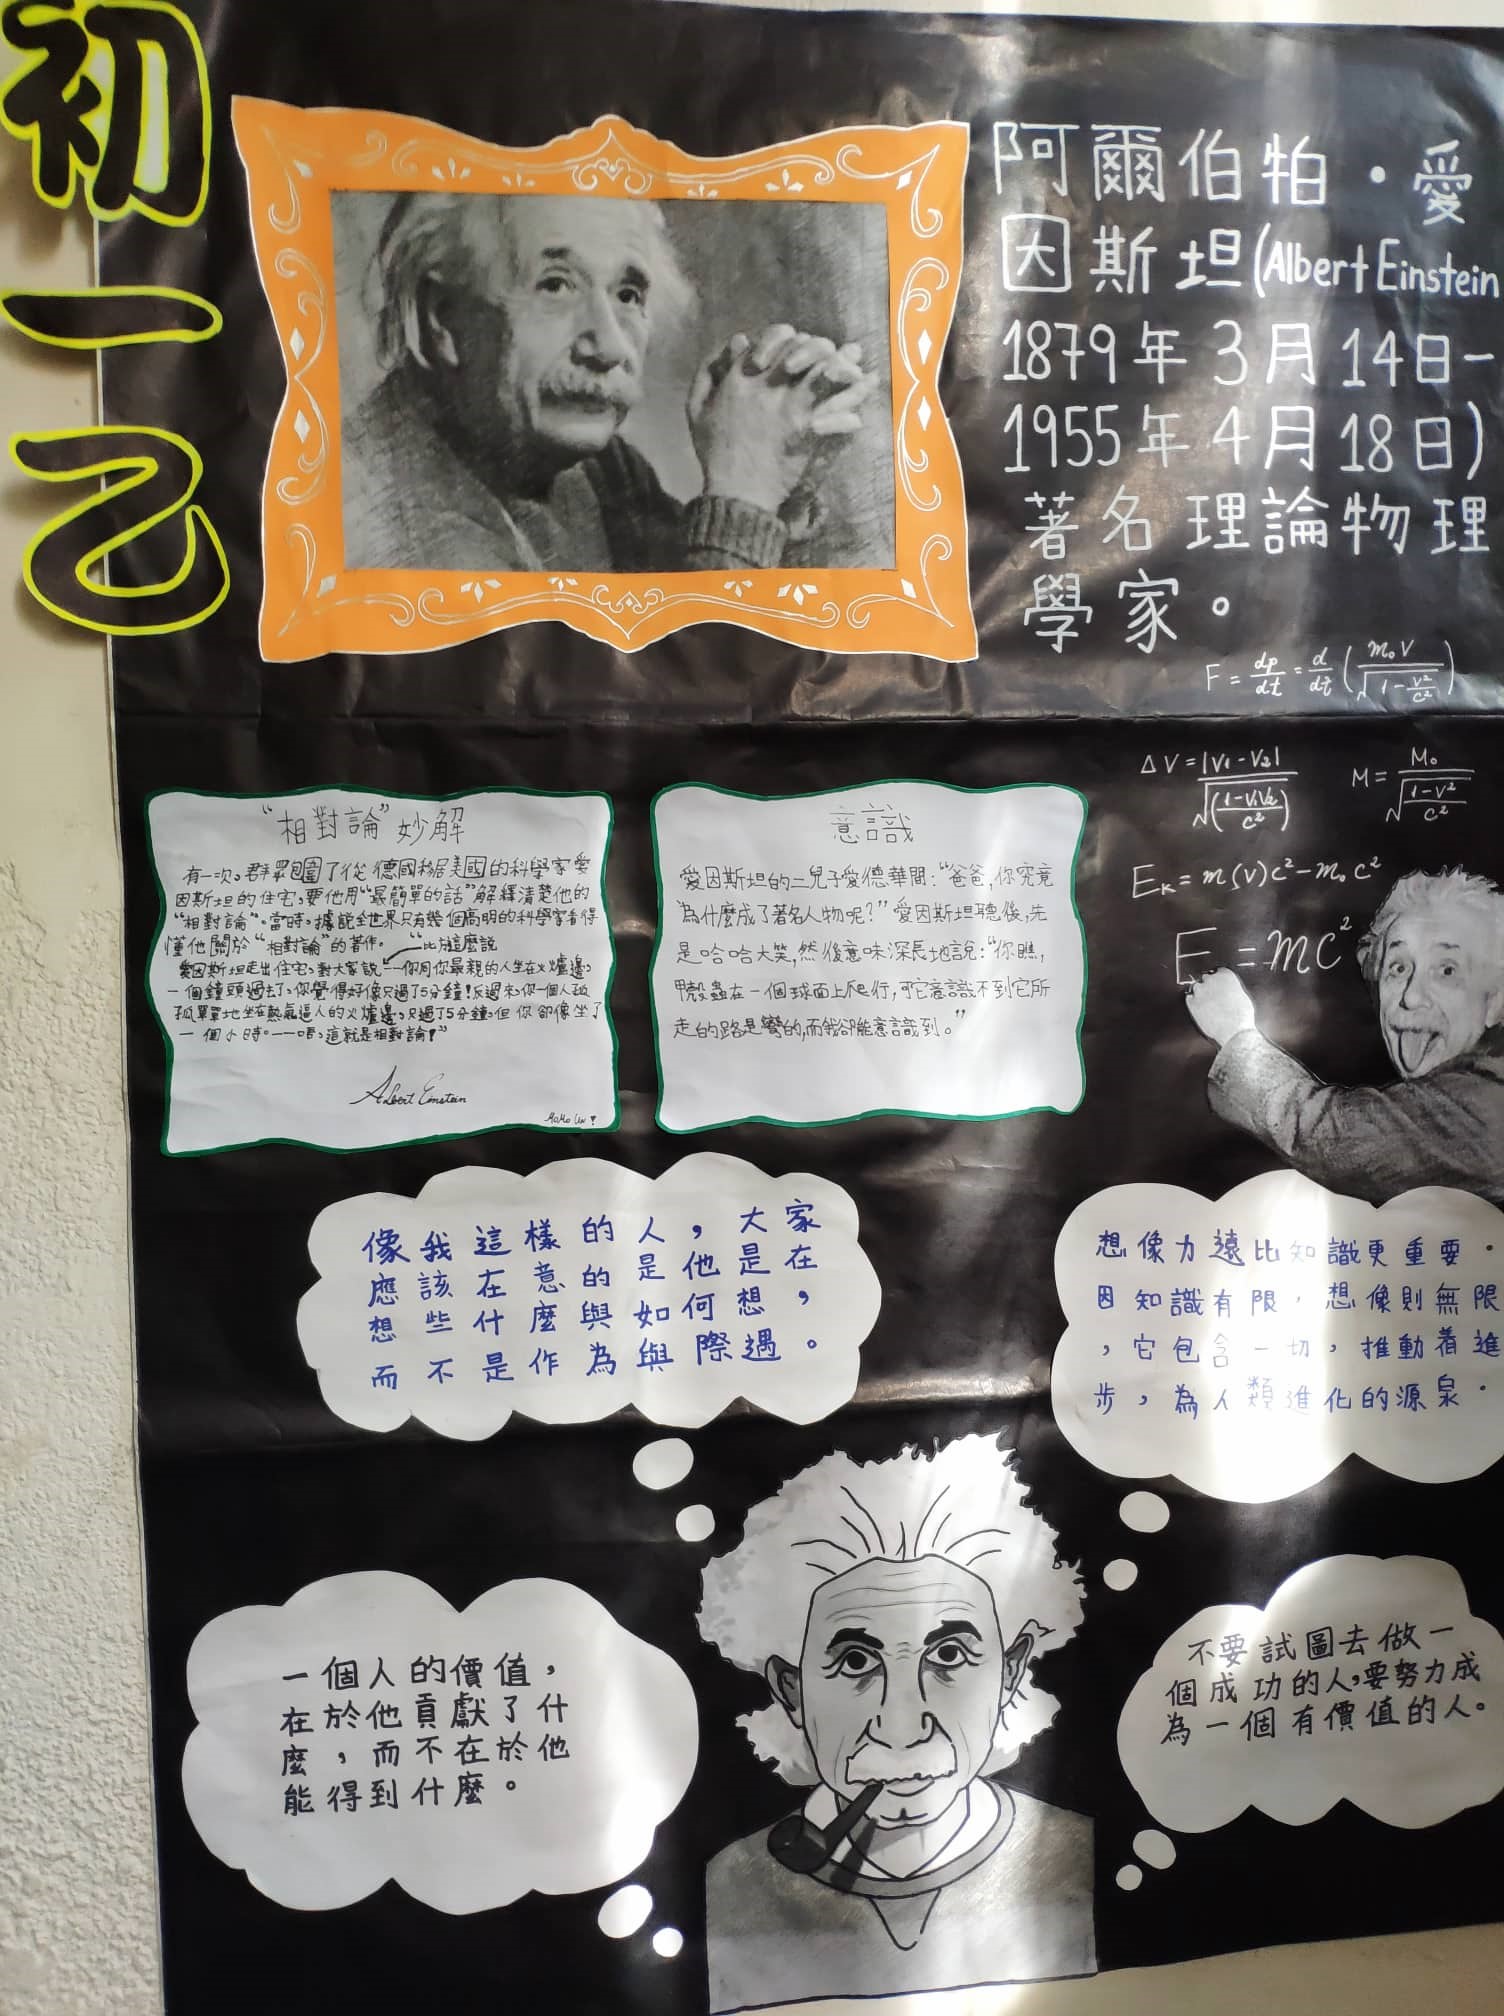 初一乙
阿爾伯柏·愛
因斯坦(Albert Einstein
1879年3月14日-
1955年4月18日)
著名理論物理
學家。
F = dp/dt = d/dt (m₀V/√(1-V²/C²))
ΔV = |V₁-V₂|/√((1-V₁V₂/C²))
M = M₀/√(1-V²/C²)
Eₖ = m(v)c²-m₀c²
E=mc²
“相對論”妙解
有一次。群眾包圍了從德國移居美國的科學家愛
因斯坦的住宅,要他用“最簡單的話”解釋清楚他的
“相對論”。當時。據說全世界只有幾個高明的科學家看得
懂他關於“相對論”的著作。
“比方這麼說
愛因斯坦走出住宅。對大家說:——你同你最親的人坐在火爐邊。
一個鐘頭過去了。你覺得好像只過了5分鐘!反過來,你一個人孤
孤單單地坐在熱氣逼人的火爐邊。只過了5分鐘,但你卻像坐了
一個小時。——唔,這就是相對論!”
Albert Einstein
意識
愛因斯坦的二兒子愛德華問:“爸爸,你究竟
為什麼成了著名人物呢?”愛因斯坦聽後,先
是哈哈大笑,然後意味深長地說:“你瞧,
甲殼蟲在一個球面上爬行,可它意識不到它所
走的路是彎的,而我卻能意識到。”
像我這樣的人,大家
應該在意的是他是在
想些什麼與如何想,
而不是作為與際遇。
想像力遠比知識更重要。
因知識有限,想像則無限
,它包含一切,推動着進
步,為人類進化的源泉。
一個人的價值,
在於他貢獻了什
麼,而不在於他
能得到什麼。
不要試圖去做一
個成功的人,要努力成
為一個有價值的人。